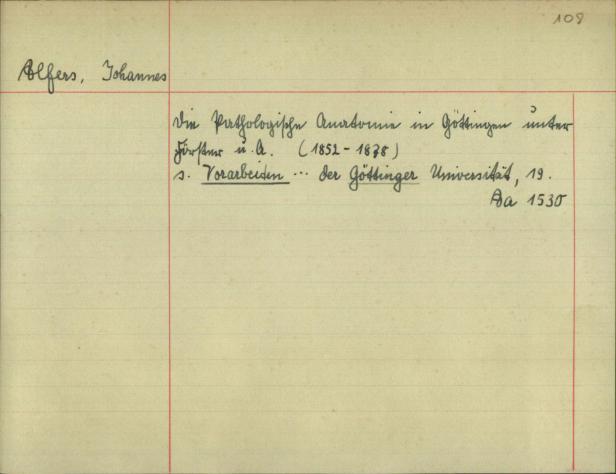 108
Alfers, Johannes
Die Pathologische Anatomie in Göttingen unter
Förster u. A. (1852-1878)
s. Vorarbeiten ... der Göttinger Universität, 19.
Aa 1530